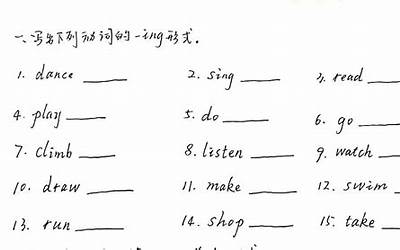 一、写出下列动词的-ing形式.
1. dance ____ 2. sing ____ 3. read ____
4. play ____ 5. do ____ 6. go ____
7. climb ____ 8. listen ____ 9. watch ____
10. draw ____ 11. make ____ 12. swim ____
13. run ____ 14. shop ____ 15. take ____